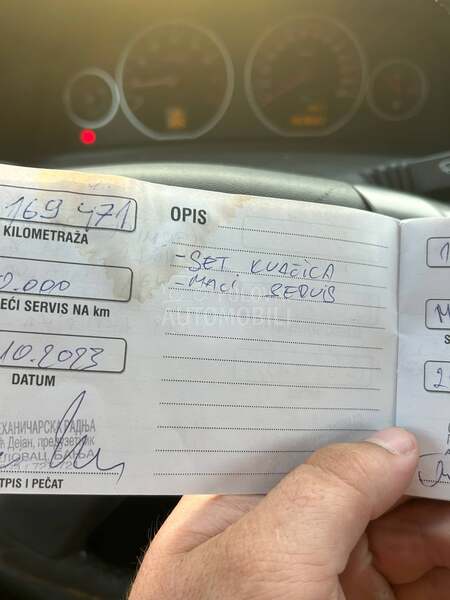 169 471
KILOMETRAŽA
0.000
EĆI SERVIS NA km
10.2023
DATUM
ХАНИЧАРСКА РАДЊА
Дејан, предузетник
ПОВАЦ, БАЊА
TPIS I PEČAT
OPIS
- SET KVAČILA
- MALI SERVIS
AUTOMOBILI
1
M
S
2